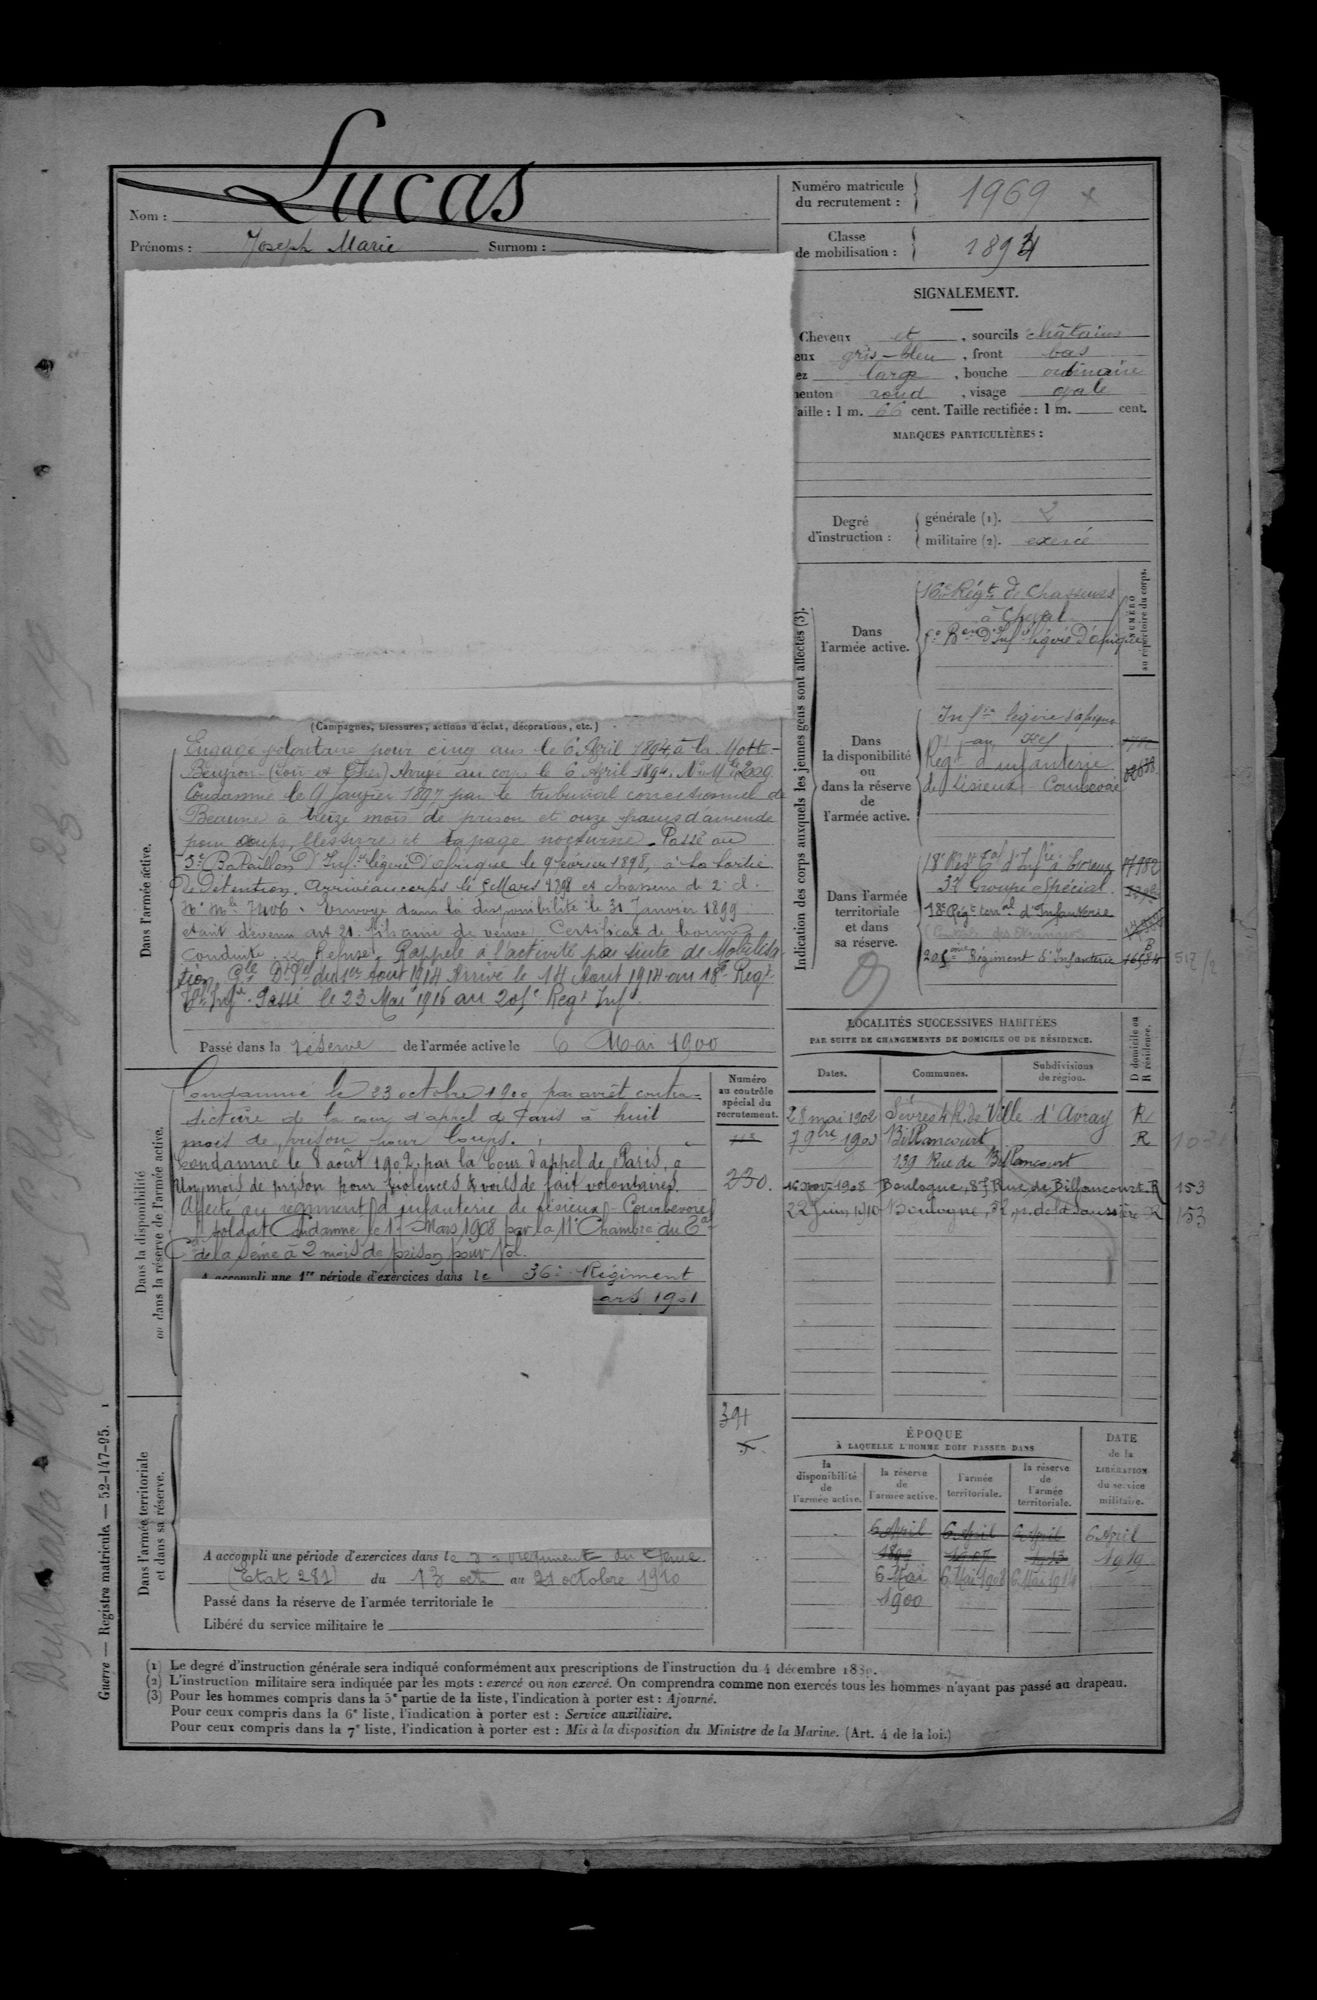 Lucas
Nom :
Prénoms : Joseph Marie Surnom :
Numéro matricule du recrutement : 1969
Classe de mobilisation : 1894
SIGNALEMENT.
Cheveux et , sourcils châtains
eux gris-bleu , front bas
ez large , bouche ordinaire
enton rond , visage ovale
aille : 1 m. 66 cent. Taille rectifiée : 1 m. cent.
MARQUES PARTICULIÈRES :
Degré d'instruction :
générale (1). 2
militaire (2). exercé
Indication des corps auxquels les jeunes gens sont affectés (3).
NUMÉRO au répertoire du corps.
Dans l'armée active.
16e Régt de Chasseurs
à Cheval
Bon d'Infie légère d'Afrique
Dans la disponibilité ou dans la réserve de l'armée active.
Infie légère d'Afrique
Régt d'infanterie
de Lisieux Courbevoie
Dans l'armée territoriale et dans sa réserve.
18e Régt Tal d'Infie
37 Groupe Spécial
18e Régt terral d'Infanterie
205eme Régiment d'Infanterie
(Campagnes, blessures, actions d'éclat, décorations, etc.)
Dans l'armée active.
Engagé volontaire pour cinq ans le 6 Avril 1894 à la Motte-
Beuvron (Loir et Cher) Arrivé au corps le 6 Avril 1894, No Mle
Condamné le 9 janvier 1897 par le tribunal correctionnel de
Beaune à treize mois de prison et onze francs d'amende
pour coups, blessures et tapage nocturne. Passé au
3e Bataillon d'Infie légère d'Afrique le 9 février 1898, à la sortie
de détention. Arrivé au corps le Mars 1898 et chasseur de 2e cl.
No mle Envoyé dans la disponibilité le 31 Janvier 1899
étant devenu art 21. fils aîné de veuve. Certificat de bonne
conduite Refusé. Rappelé à l'activité par suite de Mobilisa-
tion Gle du 1er Aout 1914 Arrivé le 14 Aout 1914 au 18e Regt
Tal Infie. Passé le 23 Mai 1916 au 205e Regt Inf
Passé dans la réserve de l'armée active le 6 Mai 1900
Dans la disponibilité ou dans la réserve de l'armée active.
Condamné le 23 octobre 1900 par arrêt contra-
dictoire de la cour d'appel de Paris à huit
mois de prison pour Coups.
Condamné le 8 août 1902 par la Cour d'appel de Paris, à
Un mois de prison pour violences & voies de fait volontaires.
Affecté au régiment d'infanterie de Lisieux - Courbevoie
soldat Condamné le 17 Mars 1908 par la 11e Chambre du Tal
de la Seine à 2 mois de prison pour vol.
A accompli une 1re période d'exercices dans le 36e Régiment
ars 1901
Numéro au contrôle spécial du recrutement.
230.
391
LOCALITÉS SUCCESSIVES HABITÉES
PAR SUITE DE CHANGEMENTS DE DOMICILE OU DE RÉSIDENCE.
D domicile ou R résidence.
Dates. Communes. Subdivisions de région.
28 mai 1902 Sèvres 4 R. de Ville d'Avray R
7 9bre 1903 Billancourt R
139 Rue de Billancourt
16 nov. 1908 Boulogne, 87, Rue de Billancourt. R 153
22 Juin 1910 Boulogne, 52, r. de la Saussière R 153
Dans l'armée territoriale et dans sa réserve.
A accompli une période d'exercices dans le régiment du Génie
(Etat 281) du 13 oct au 21 octobre 1910
Passé dans la réserve de l'armée territoriale le
Libéré du service militaire le
ÉPOQUE
À LAQUELLE L'HOMME DOIT PASSER DANS
la disponibilité de l'armée active.
la réserve de l'armée active.
l'armée territoriale.
la réserve de l'armée territoriale.
DATE de la LIBÉRATION du service militaire.
6 Avril 6 Avril 6 Avril 6 Avril
1899 1907 1913 1919
6 Mai 6 Mai 1908 6 Mai 1914
1900
(1) Le degré d'instruction générale sera indiqué conformément aux prescriptions de l'instruction du 4 décembre 1889.
(2) L'instruction militaire sera indiquée par les mots : exercé ou non exercé. On comprendra comme non exercés tous les hommes n'ayant pas passé au drapeau.
(3) Pour les hommes compris dans la 5e partie de la liste, l'indication à porter est : Ajourné.
Pour ceux compris dans la 6e liste, l'indication à porter est : Service auxiliaire.
Pour ceux compris dans la 7e liste, l'indication à porter est : Mis à la disposition du Ministre de la Marine. (Art. 4 de la loi.)
Guerre — Registre matricule. — 52-147-95. 1